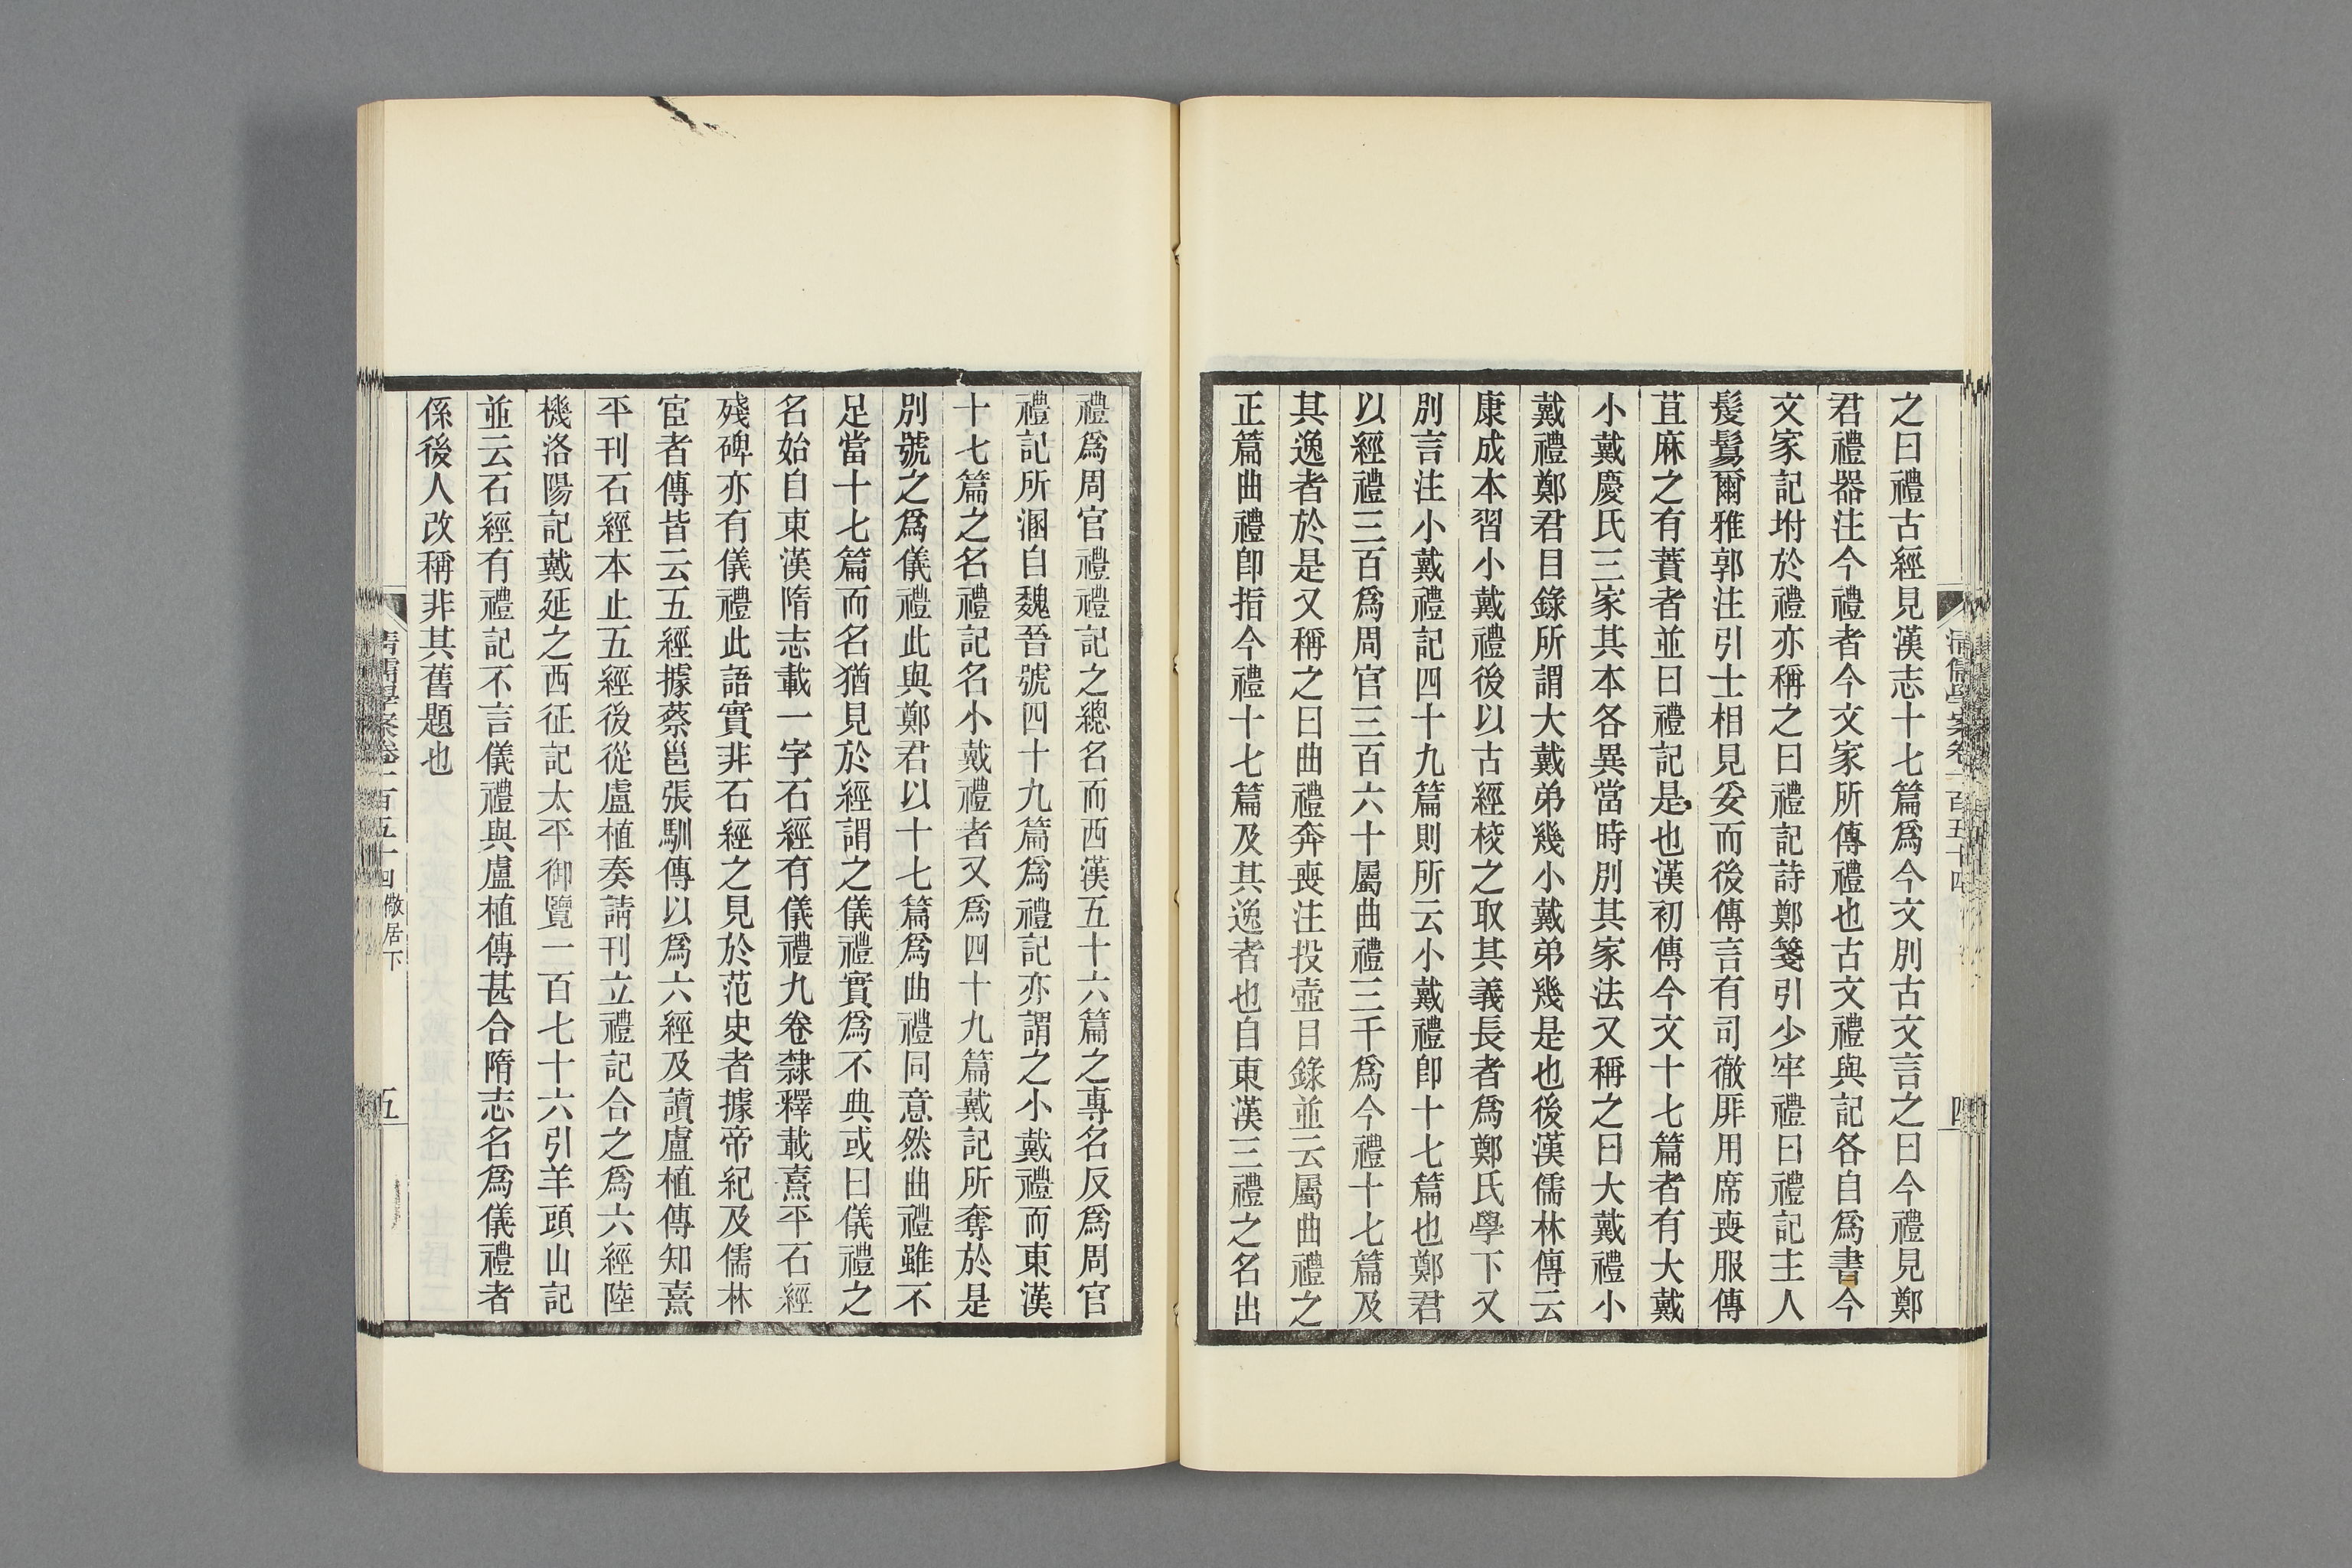 之曰禮古經見漢志十七篇爲今文別古文言之曰今禮見鄭
君禮器注今禮者今文家所傳禮也古文禮與記各自爲書今
文家記坿於禮亦稱之曰禮記詩鄭箋引少牢禮曰禮記主人
髲鬄爾雅郭注引士相見妥而後傳言有司徹厞用席喪服傳
苴麻之有蕡者並曰禮記是也漢初傳今文十七篇者有大戴
小戴慶氏三家其本各異當時別其家法又稱之曰大戴禮小
戴禮鄭君目錄所謂大戴弟幾小戴弟幾是也後漢儒林傳云
康成本習小戴禮後以古經校之取其義長者爲鄭氏學下又
別言注小戴禮記四十九篇則所云小戴禮卽十七篇也鄭君
以經禮三百爲周官三百六十屬曲禮三千爲今禮十七篇及
其逸者於是又稱之曰曲禮奔喪注投壺目錄並云屬曲禮之
正篇曲禮卽指今禮十七篇及其逸者也自東漢三禮之名出
清儒學案卷一百五十四
四
禮爲周官禮禮記之總名而西漢五十六篇之專名反爲周官
禮記所溷自魏晉號四十九篇爲禮記亦謂之小戴禮而東漢
十七篇之名禮記名小戴禮者又爲四十九篇戴記所奪於是
別號之爲儀禮此與鄭君以十七篇爲曲禮同意然曲禮雖不
足當十七篇而名猶見於經謂之儀禮實爲不典或曰儀禮之
名始自東漢隋志載一字石經有儀禮九卷隸釋載熹平石經
殘碑亦有儀禮此語實非石經之見於范史者據帝紀及儒林
宦者傳皆云五經據蔡邕張馴傳以爲六經及讀盧植傳知熹
平刊石經本止五經後從盧植奏請刊立禮記合之爲六經陸
機洛陽記戴延之西征記太平御覽一百七十六引羊頭山記
並云石經有禮記不言儀禮與盧植傳甚合隋志名爲儀禮者
係後人改稱非其舊題也
清儒學案卷一百五十四 儆居下
五